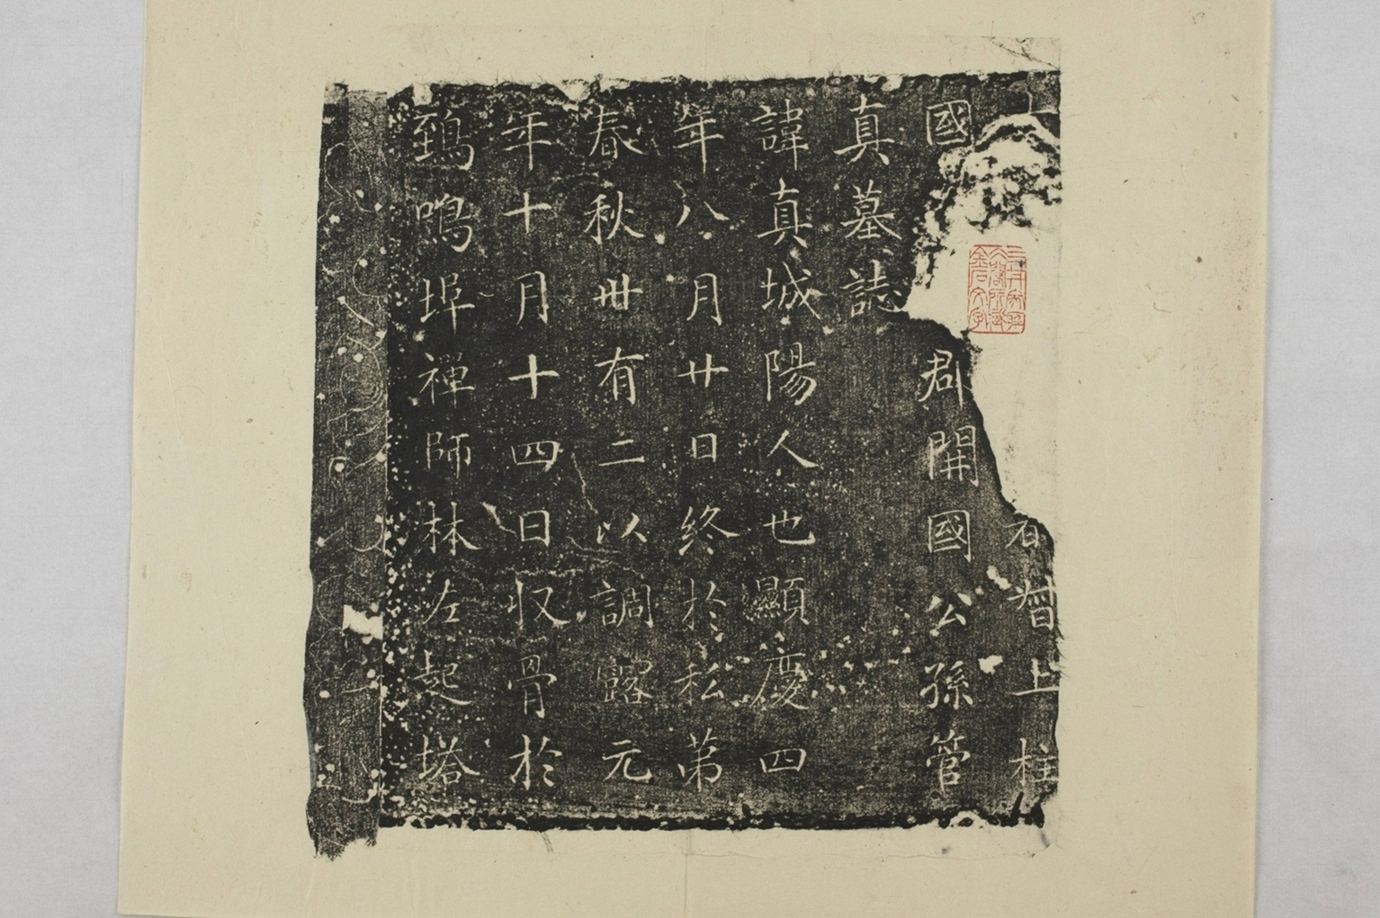 督上柱
國郡開國公孫管
真墓誌
諱真城陽人也顯慶四
年八月廿日終於私第
春秋卌有二以調露元
年十月十四日收骨於
鵄鳴埠禪師林左起塔